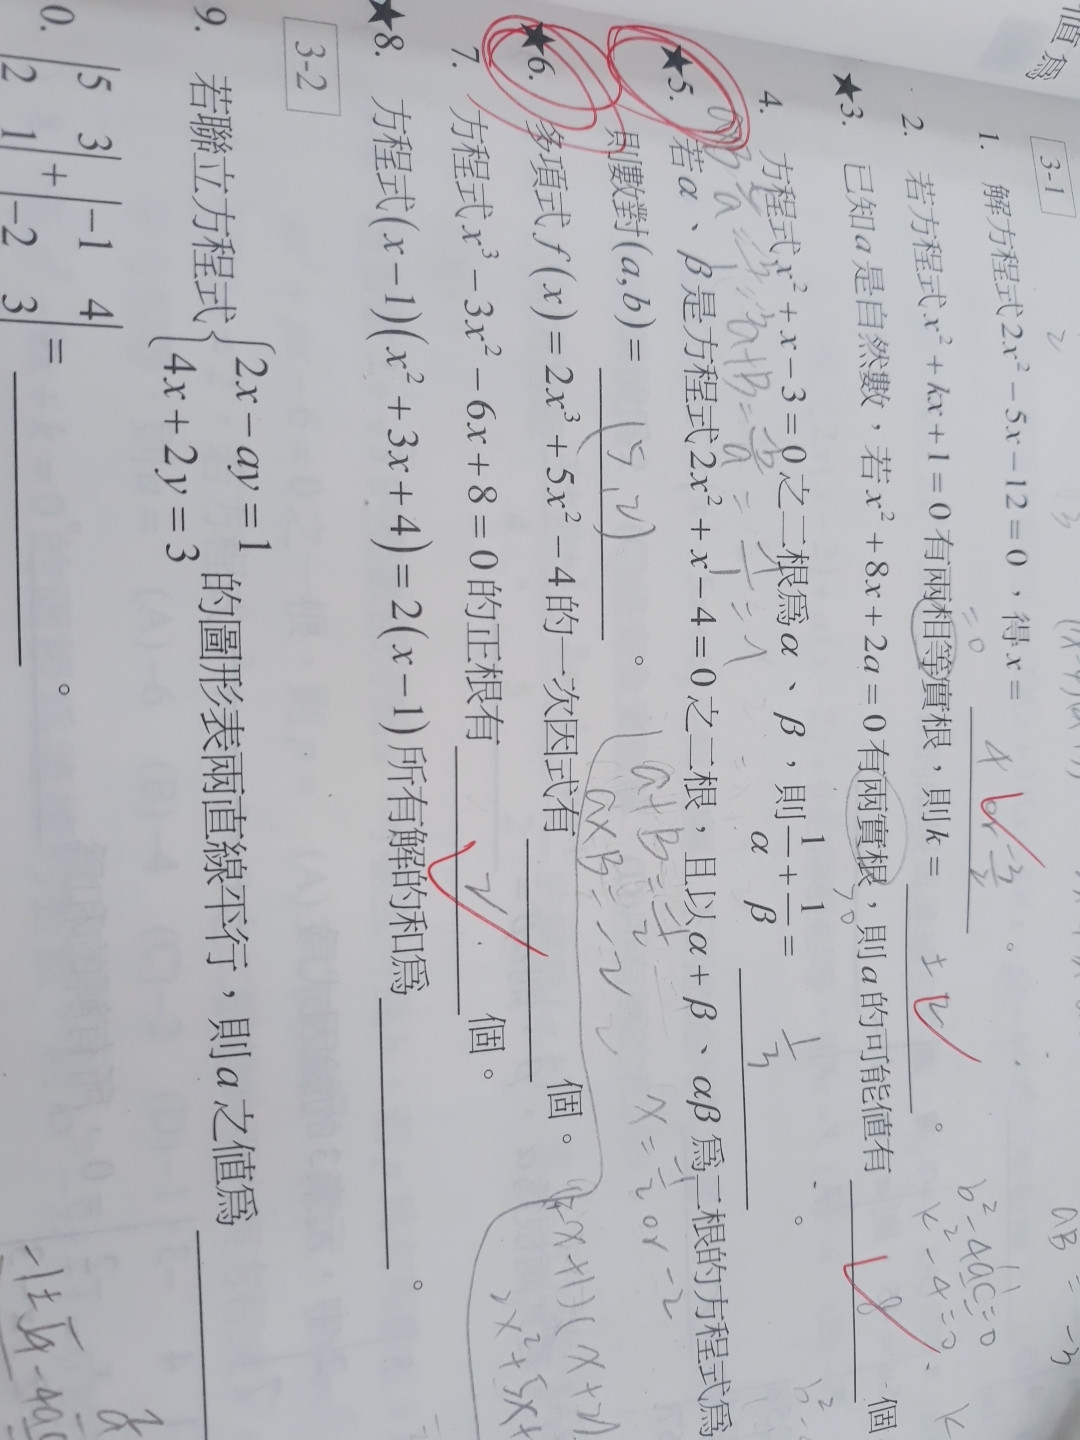 值為
3-1
1. 解方程式2x²－5x－12＝0，得x＝ 4 or -3/2 。
2. 若方程式x²＋kx＋1＝0有兩相等實根，則k＝ ±2 。
=0
b²-4ac=0
k²-4=0
★3. 已知a是自然數，若x²＋8x＋2a＝0有兩實根，則a的可能值有 8 個
4. 方程式x²＋x－3＝0之二根為α、β，則1/α＋1/β＝ 1/3 。
★5. 若α、β是方程式2x²＋x－4＝0之二根，且以α＋β、αβ為二根的方程式為
則數對(a,b)＝ (5,2) 。
α+β=-1/2
αxβ=-2
x=-1/2 or -2
(2x+1)(x+2)
2x²+5x+
★6. 多項式f(x)＝2x³＋5x²－4的一次因式有 個。
7. 方程式x³－3x²－6x＋8＝0的正根有 2 個。
★8. 方程式(x－1)(x²＋3x＋4)＝2(x－1)所有解的和為 。
3-2
9. 若聯立方程式{2x－ay＝1
4x＋2y＝3 的圖形表兩直線平行，則a之值為
0. |5 3|＋|－1 4|
|2 1| |－2 3|＝ 。